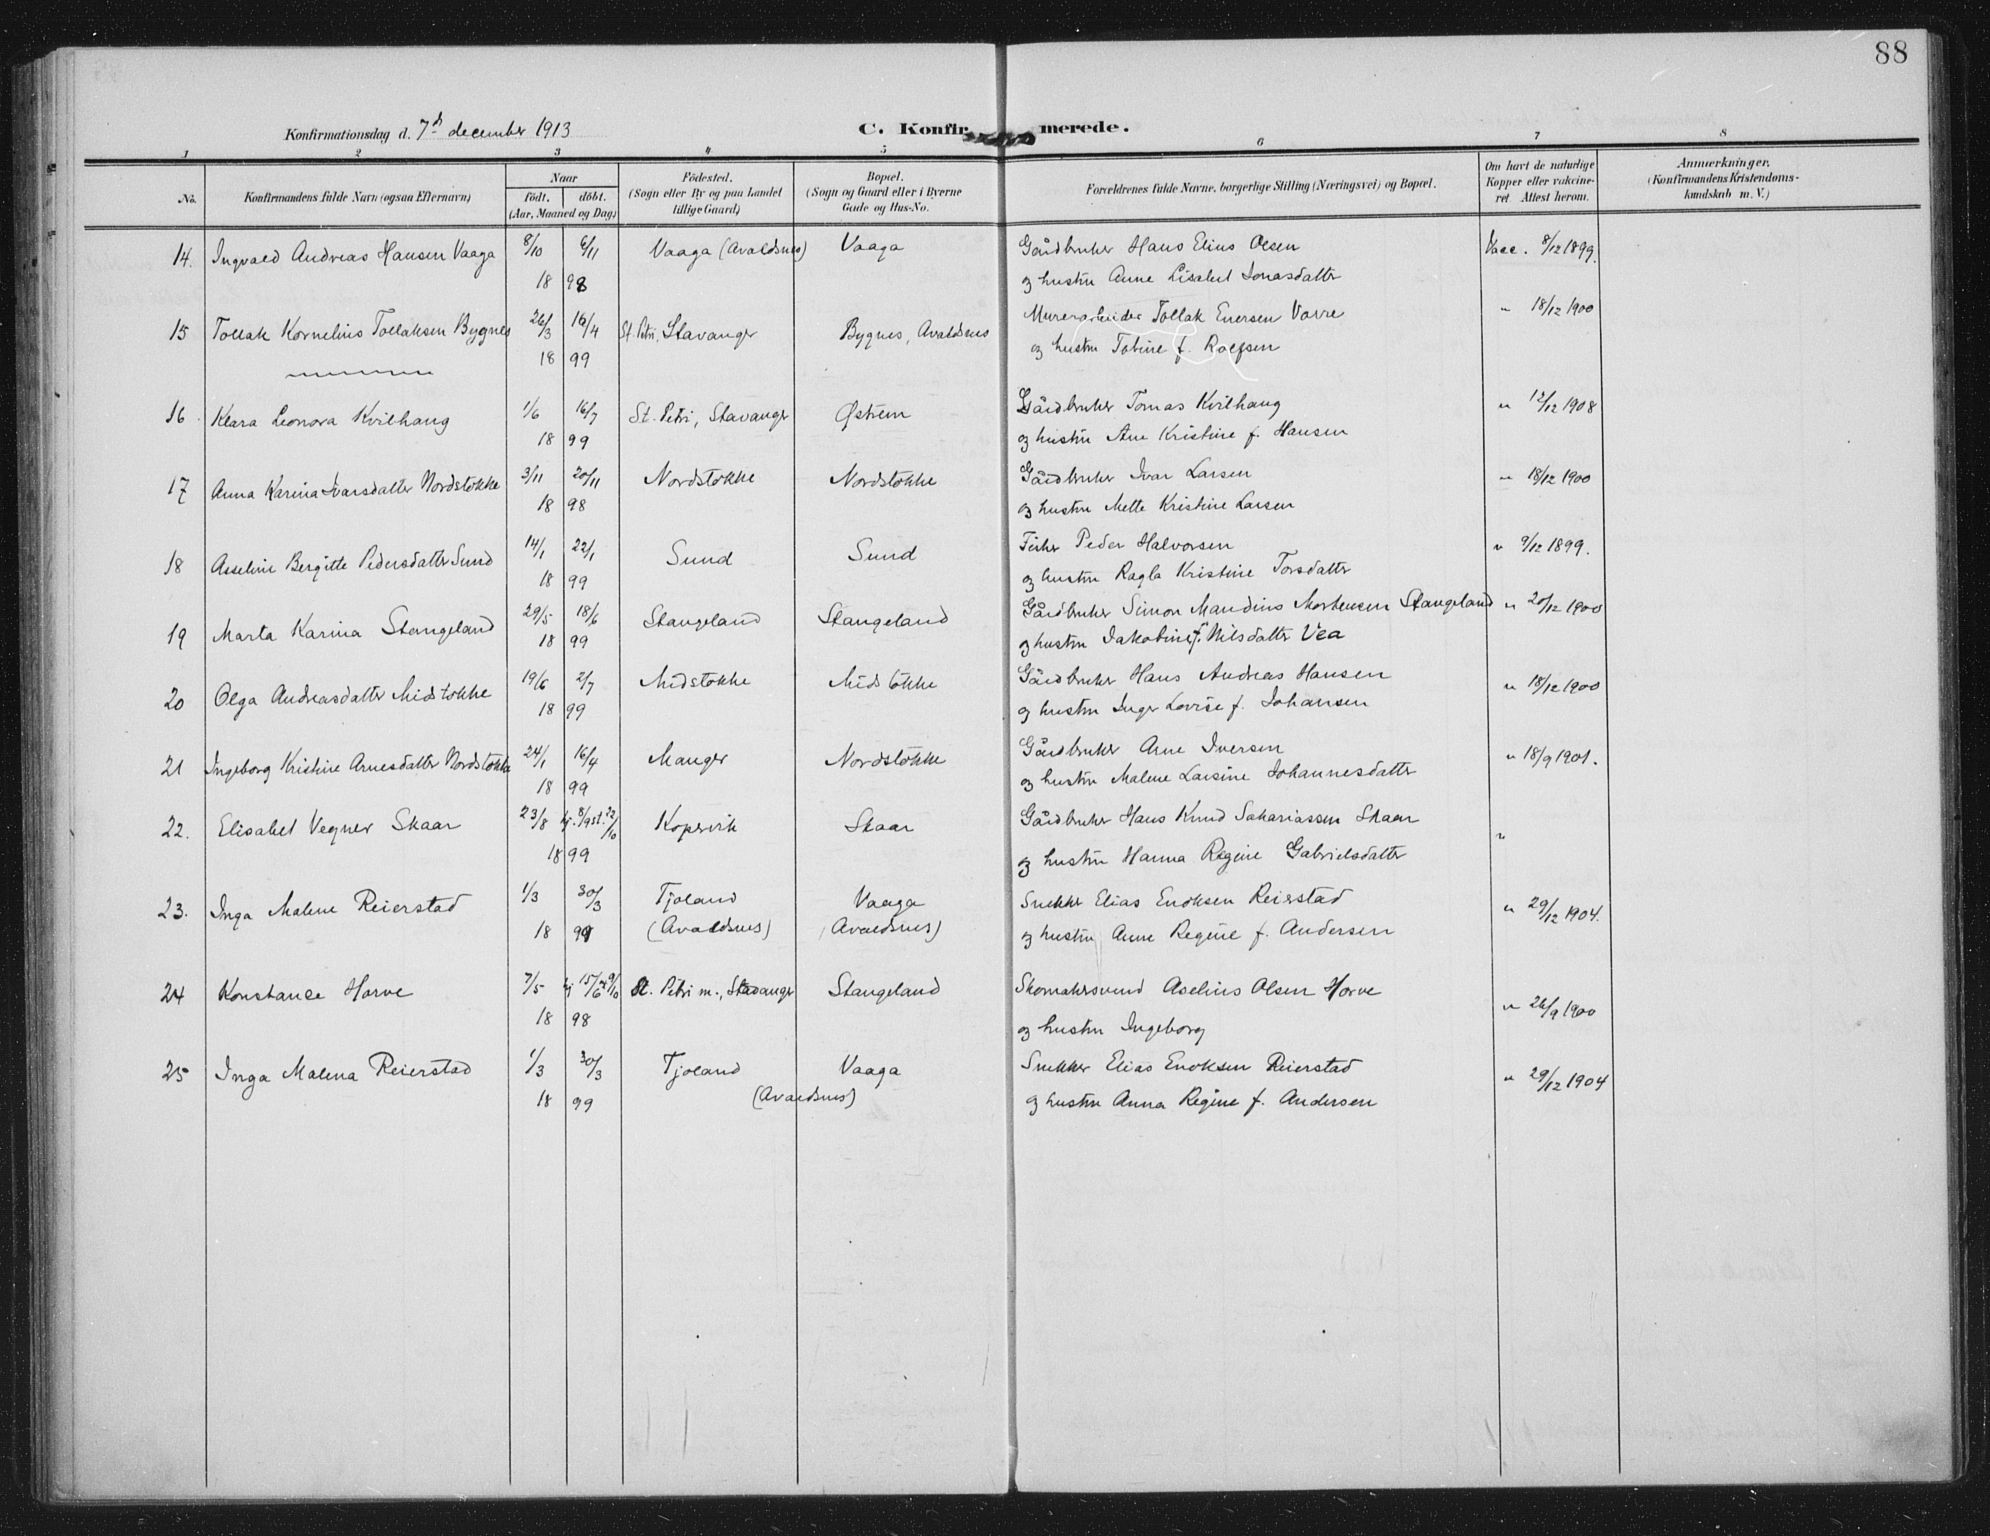 88
Konfirmationsdag d. 7d december 1913
C. Konfirmerede.
1 2 3 4 5 6 7 8
No.
Konfirmandens fulde Navn (ogsaa Efternavn)
Naar
födt. döbt.
(Aar, Maaned og Dag)
Födested.
(Sogn eller By og paa Landet
tillige Gaard)
Bopæl.
(Sogn og Gaard eller i Byerne
Gade og Hus-No.
Forældrenes fulde Navne, borgerlige Stilling (Næringsvei) og Bopæl.
Om havt de naturlige
Kopper eller vakcine-
ret Attest herom.
Anmærkninger.
(Konfirmandens Kristendoms-
kundskab m. V.)
14. Ingvald Andreas Hansen Vaaga 8/10 6/11 Vaaga (Avaldsnes) Vaaga Gårdbruker Hans Elius Olsen Vacc. 8/12 1899.
18 98 og hustru Anne Lisabet Jonasdatter
15 Tollak Kornelius Tollaksen Bygnes 26/3 16/4 St. Petri, Stavanger Bygnes, Avaldsnes Murerarbeider Tollak Enersen Vorre " 18/12 1900
18 99 og hustru Tobine f. Roefsen
16 Klara Leonora Kvilhaug 1/6 16/7 St. Petri, Stavanger Østrem Gårdbruker Tomas Kvilhaug " 12/12 1908
18 99 og hustru Ane Kristine f. Hansen
17 Anna Karina Ivarsdatter Nordstokke 3/11 20/11 Nordstokke Nordstokke Gårdbruker Ivar Larsen " 18/12 1900
18 98 og hustru Mette Kristine Larsen
18 Asseline Bergitte Pedersdatter Sund 14/1 22/1 Sund Sund Fisker Peder Halvorsen " 9/12 1899.
18 99 og hustru Ragla Kristine Torsdatter
19 Marta Karina Stangeland 29/5 18/6 Stangeland Stangeland Gårdbruker Simon Maudius Mortensen Stangeland " 20/12 1900
18 99 og hustru Jakobine f. Nilsdatter Vea
20 Olga Andreasdatter Midstokke 19/6 2/7 Midstokke Midstokke Gårdbruker Hans Andreas Hansen " 18/12 1900
18 99 og hustru Inger Lovise f. Johansen
21 Ingeborg Kristine Arnesdatter Nordstokke 24/1 16/4 Manger Nordstokke Gårdbruker Arne Iversen " 18/9 1901.
18 99 og hustru Malene Larsine Johannesdatter
22. Elisabet Vegner Skaar 23/8 hj. 8/9 st. 22/10 Kopervik Skaar Gårdbruker Hans Knud Sakariassen Skaar "
18 99 og hustru Hanna Regine Gabrielsdatter
23. Inga Malene Reierstad 1/3 30/3 Tjoland Vaaga Snekker Elias Enoksen Reierstad " 29/12 1904.
18 99 (Avaldsnes) (Avaldsnes) og hustru Anne Regine f. Andersen
24 Konstance Horve 7/5 hj 15/6 st 9/10 St. Petri m., Stavanger Stangeland Skomakersvend Aselius Olsen Horve " 26/9 1900
18 98 og hustru Ingeborg
25 Inga Malena Reierstad 1/3 30/3 Tjoland Vaaga Snekker Elias Enoksen Reierstad " 29/12 1904
18 99 (Avaldsnes) og hustru Anna Regine f. Andersen